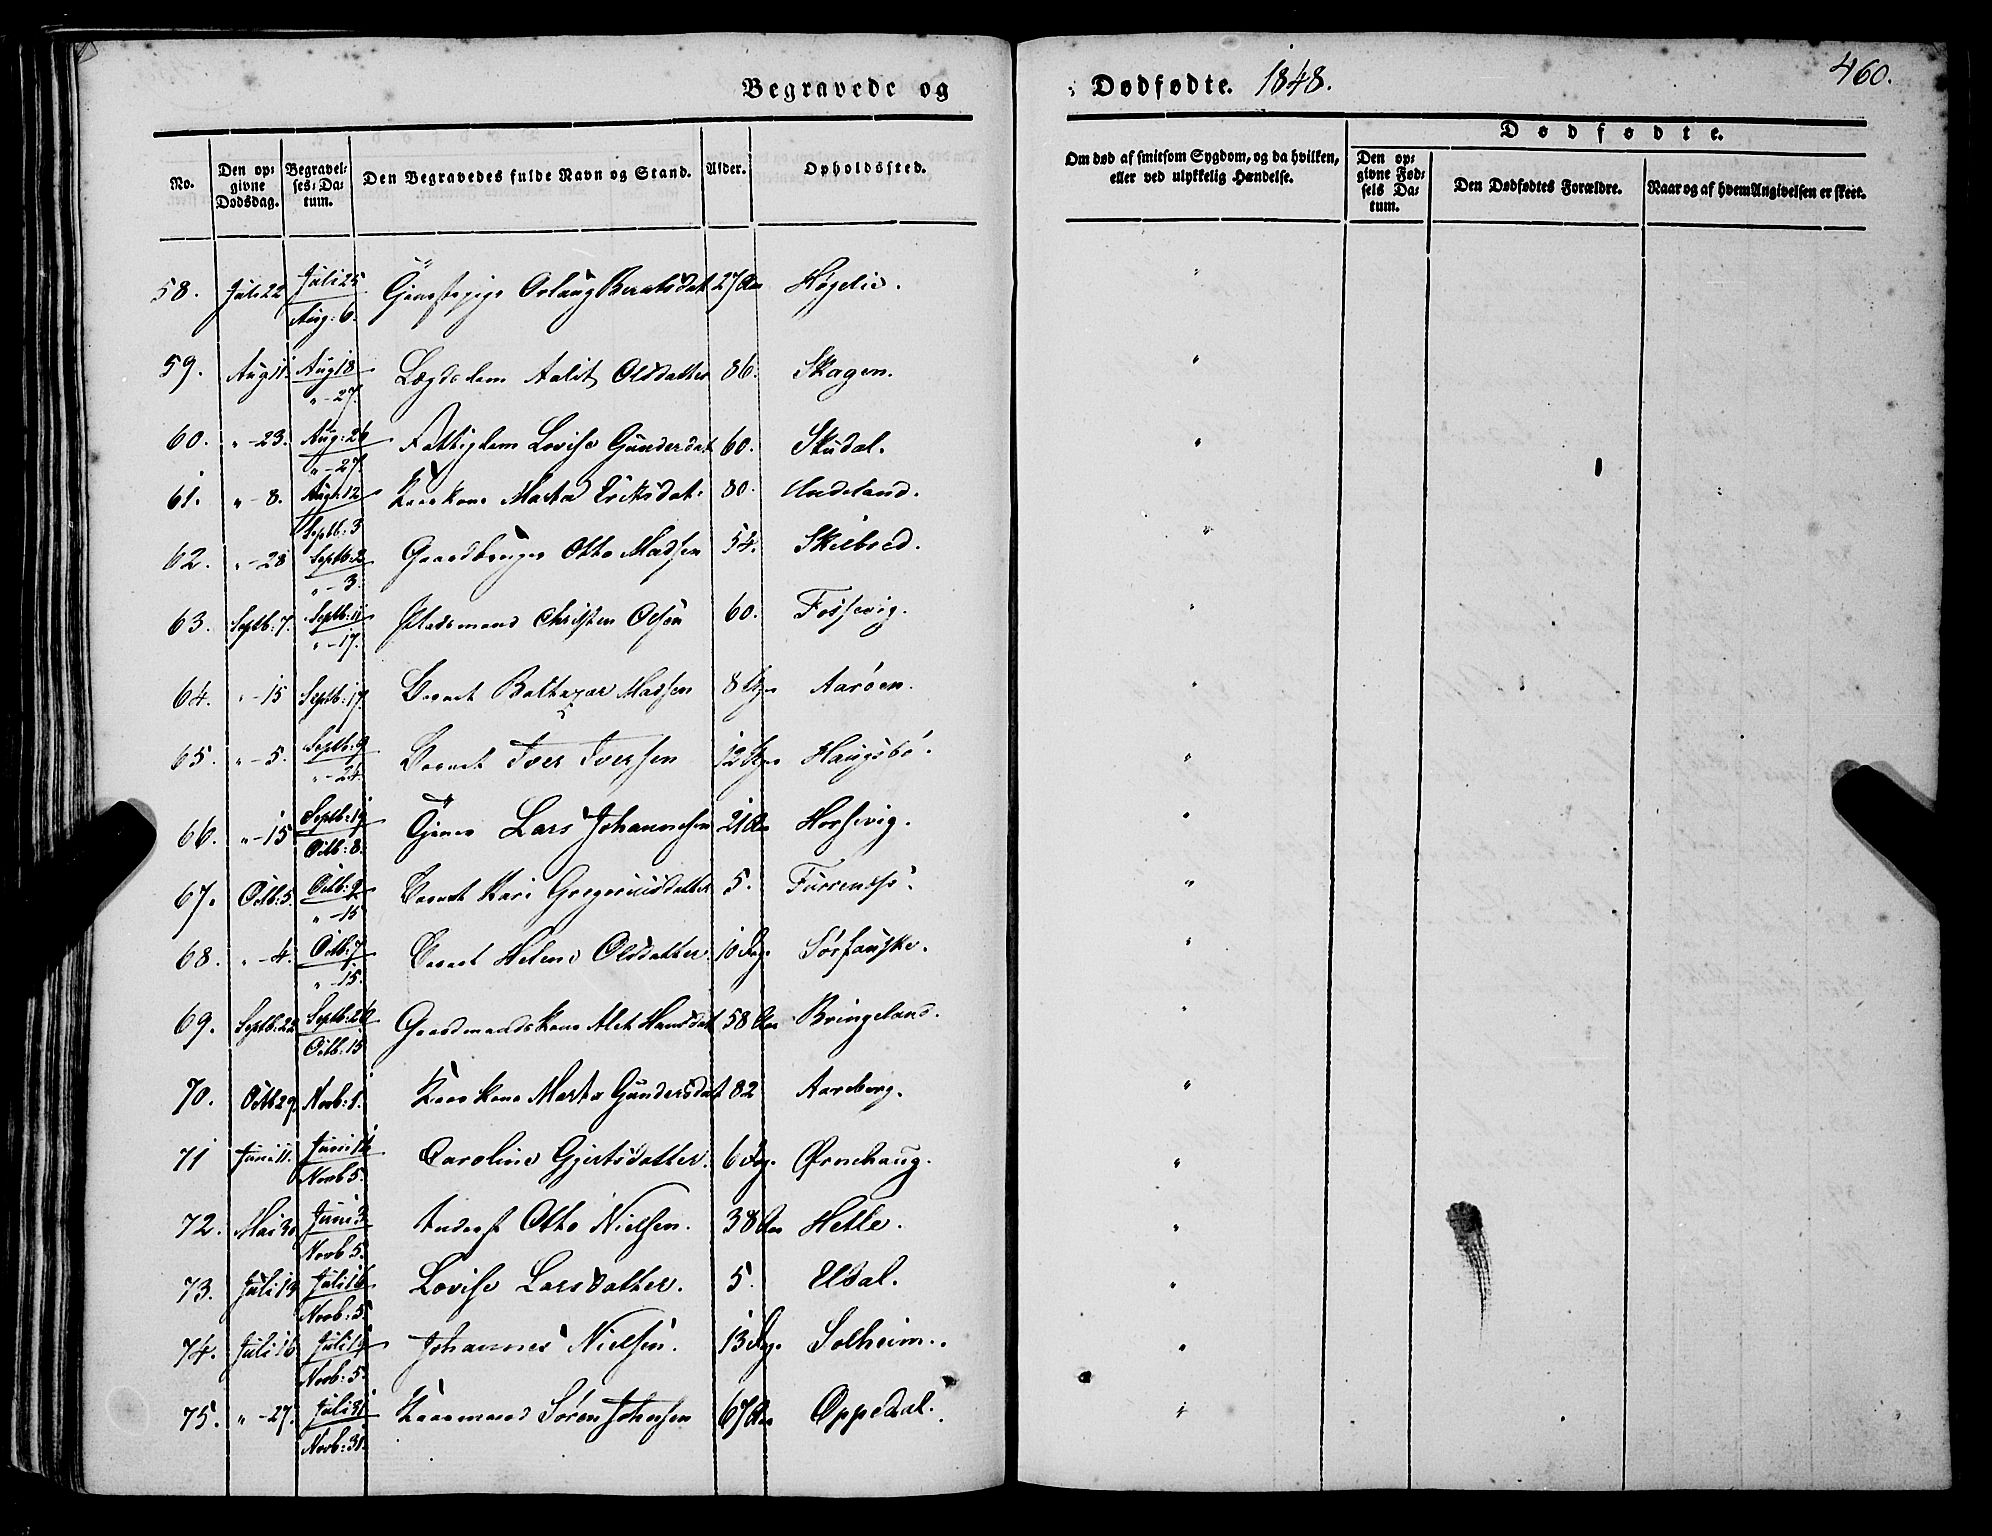 Begravede og Dødfødte. 1848. 460.
No. | Den opgivne Dødsdag. | Begravelses-Datum. | Den Begravedes fulde Navn og Stand. | Alder. | Opholdssted. | Om død af smitsom Sygdom, og da hvilken, eller ved ulykkelig Hændelse. | Dødfødte. | Den opgivne Fødsels Datum. | Den Dødfødtes Forældre. | Naar og af hvem Angivelsen er skeet.
58. Juli 22 Juli 25 Aug: 6. Oslaug Berntsdat 27 Aar Høgelie. "
59. Aug 11. Aug 18 " - 27. Lægdslem Aalit Olsdatter 86. Skagen. "
60. " - 23. Aug: 26 " - 27. Fattiglem Lovise Gundersdat 60. Skudal. "
61. " - 8. Aug: 12 Septb: 3 Kaarkone Marta Eriksdat: 80. Indeland.
62. " - 28 Septb: 2 " - 3. Gaardbruger Otto Madsen 54. Skilbred. "
63. Septb: 7. Septb: 11 " - 17. Pladsmand Christen Olsen 60. Fossevig. "
64. " - 15 Septb: 17. Barnet Baltazar Hansen 8 Aarøen. "
65. " - 5. Septb: 9 " - 24. Barnet Iver Iversen 12 Haugsbø. "
66. " - 15 Septb: 19 Octb: 8. Lars Johannesen 21 Aar Horsevig. "
67. Octb: 5. Octb: 9 " - 15 Barnet Kari Gregeriusdatter 5. "
68. " - 4. Octb: 7 " - 15. Barnet Helene Olsdatter 10 Dag. Sørfauske. "
69. Septb: 22 Septb: 26 Octb: 15 Gaardmandskone Alet Hansdat 58 Aar Bringeland. "
70. Octb 29. Novb: 1. Kaarkone Marta Gundersdat 82 Aareberg. "
71 Juni 11. Juni 14 Novb 5. Caroline Gjertsdatter. 6 Dag. Ørnehaug. "
72. Mai 30 Juni 3 Novb 5. Inderst Otto Nielsen. 38 Aar Hetle. "
73. Juli 13 Juli 16 Novb: 5. Lovise Larsdatter. 5. Eldal. "
74. Juli 16 Juli 19 Novb: 5. Johannes Nielsen. 13 Dag. Solheim. "
75. " - 27. Juli 31 Novb: 31. Kaarmand Søren Johnsen 67 Aar Oppedal. "